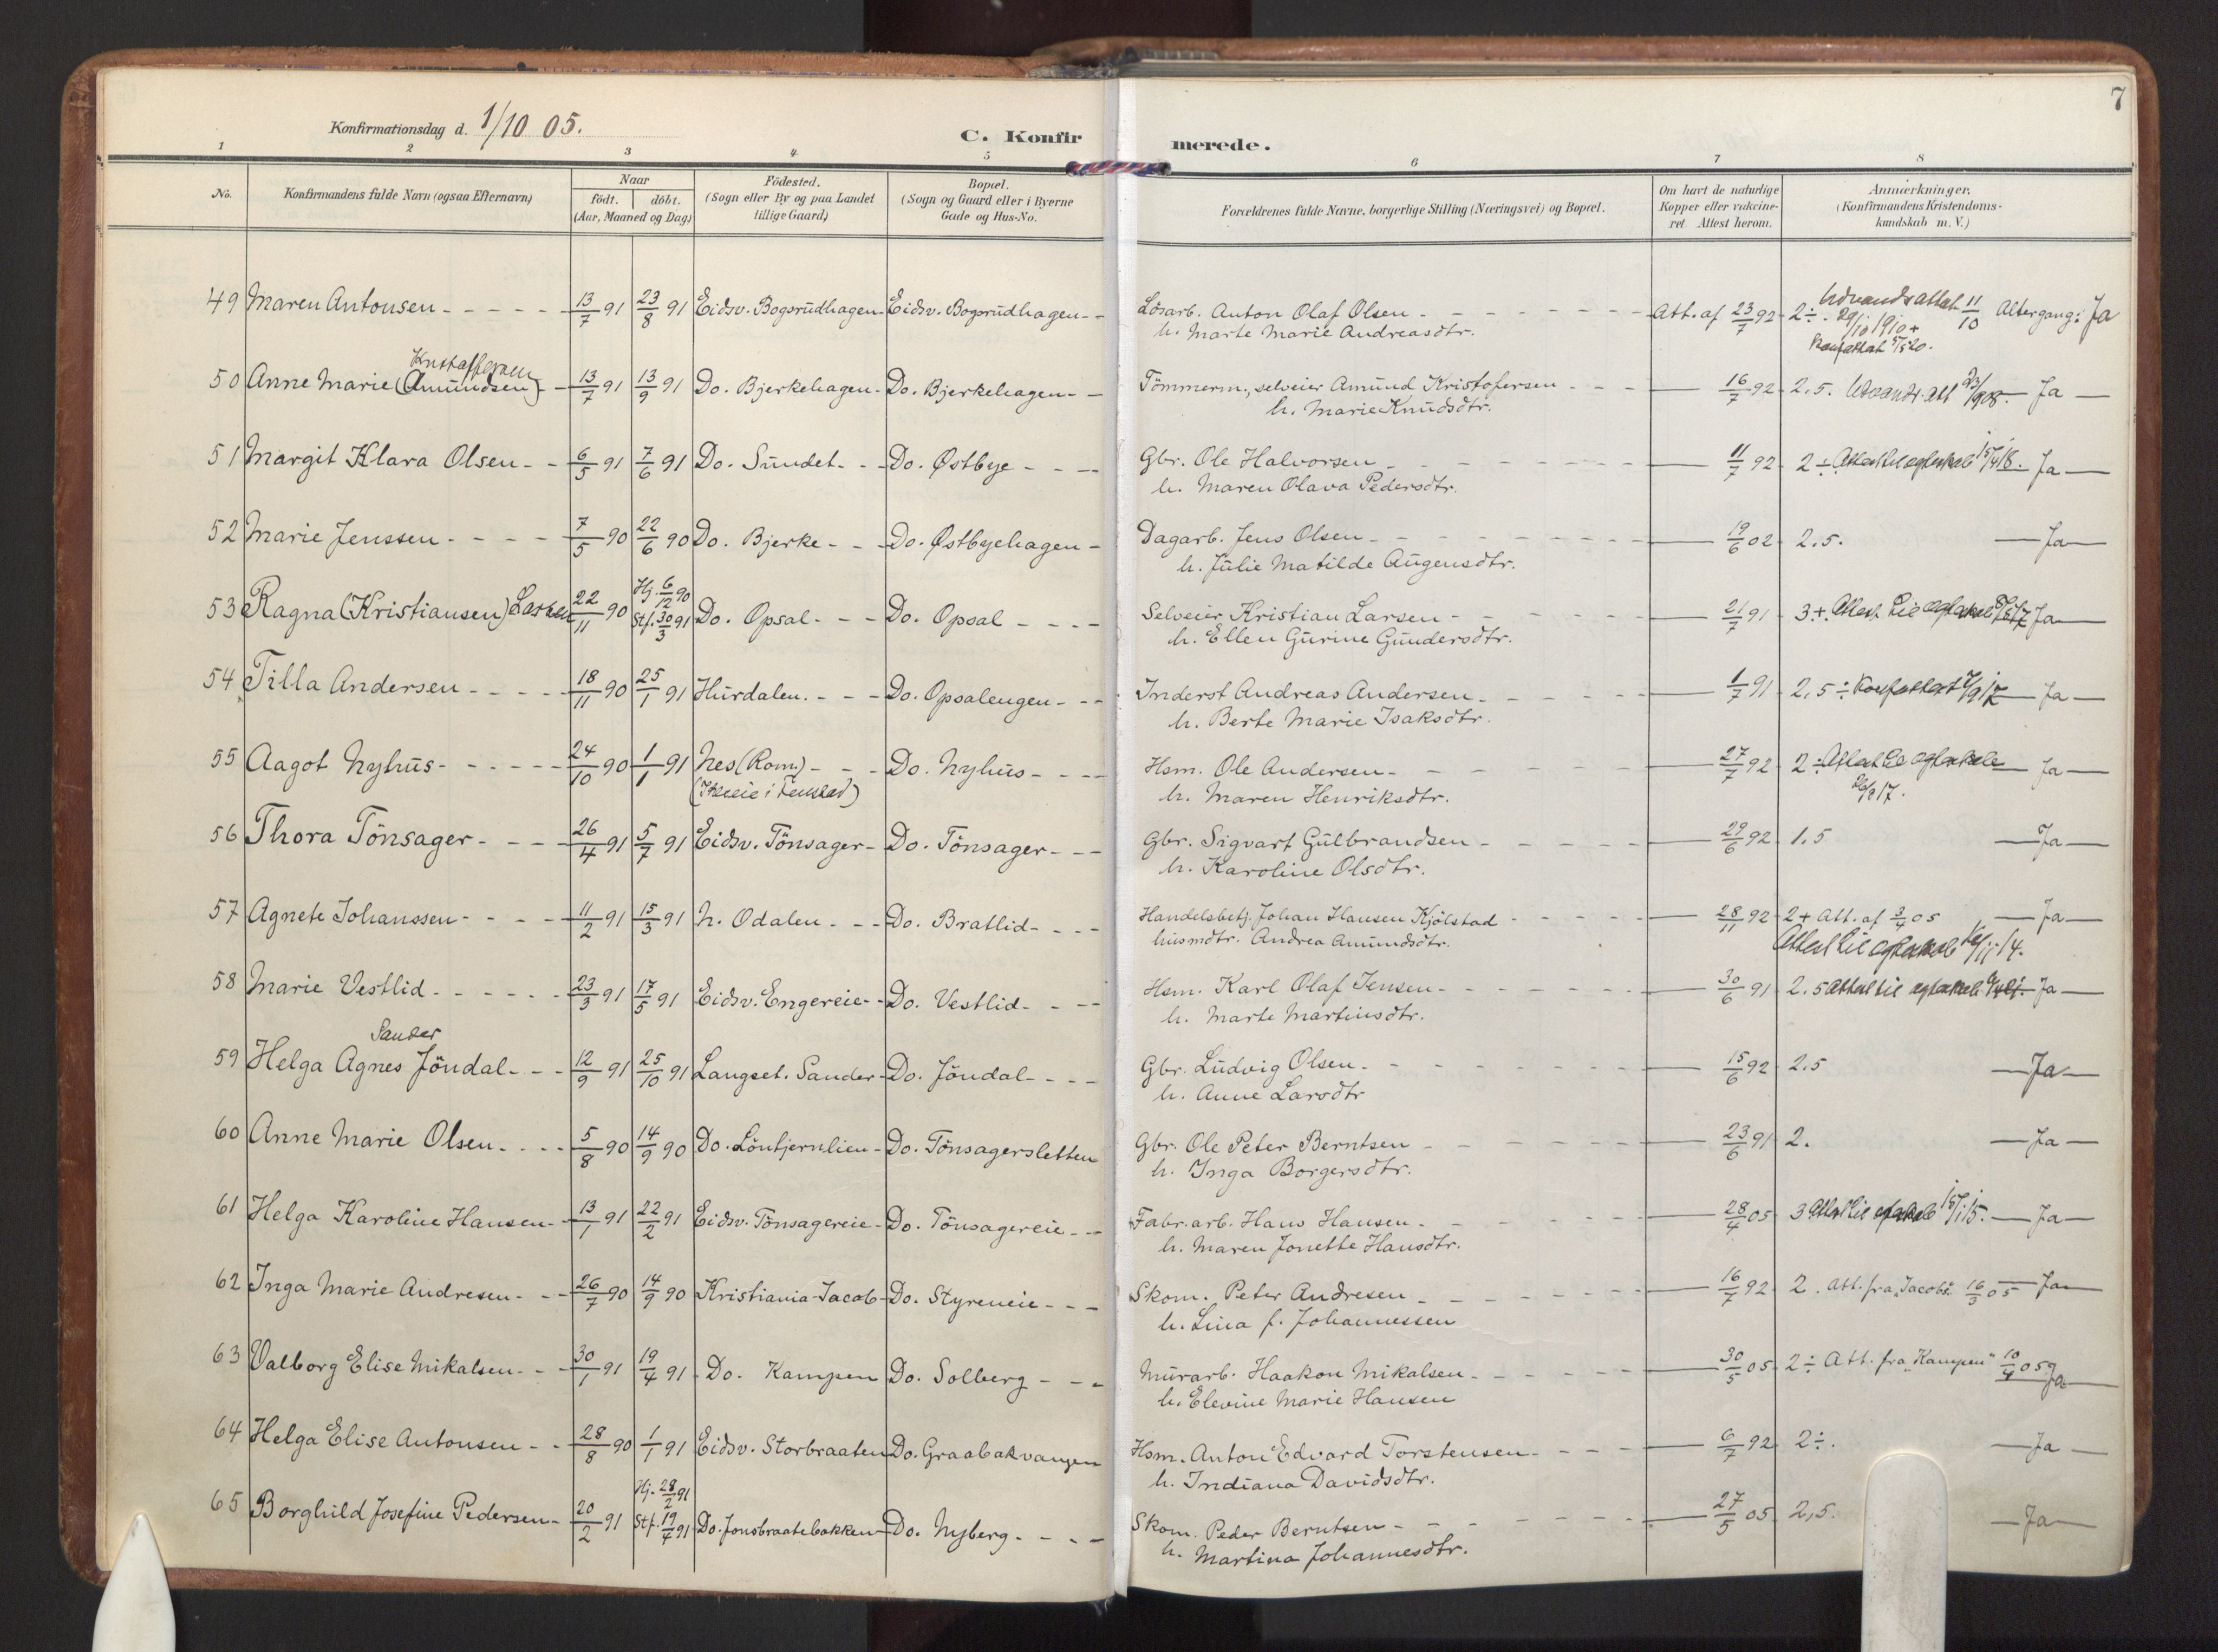 7
Konfirmationsdag d. 1/10 05.
C. Konfirmerede.
1 2 3 4 5 6 7 8
No.
Konfirmandens fulde Navn (ogsaa Efternavn)
Naar
födt. döbt.
(Aar, Maaned og Dag)
Födested.
(Sogn eller By og paa Landet
tillige Gaard)
Bopæl.
(Sogn og Gaard eller i Byerne
Gade og Hus-No.
Forældrenes fulde Navne, borgerlige Stilling (Næringsvei) og Bopæl.
Om havt de naturlige
Kopper eller vakcine-
ret Attest herom.
Anmærkninger.
(Konfirmandens Kristendoms-
kundskab m. V.)
49 Maren Antonsen 13/7 91 23/8 91 Eidsv. Bogsrudhagen Eidsv. Bogsrudhagen Lösarb. Anton Olaf Olsen Att. af 23/7 92 2÷. 11/10 Altergang: Ja
h. Marte Marie Andreasdtr. 29/10 1910 +
Konfattest 5/5 20.
Kristoffersen
50 Anne Marie (Amundsen) 13/7 91 13/9 91 Do. Bjerkehagen Do. Bjerkehagen Tömmerm., selveier Amund Kristofersen 16/7 92 2.5. Udvandr. att 23/ 908. Ja
h. Marie Knudsdtr.
51 Margit Klara Olsen 6/5 91 7/6 91 Do. Sundet Do. Østbye Gbr. Ole Halvorsen 11/7 92 2÷ Attest til egteskab 15/4 18. Ja
h. Maren Olava Pedersdtr.
52 Marie Jenssen 7/5 90 22/6 90 Do. Bjerke Do. Østbyehagen Dagarb. Jens Olsen 19/6 02 2.5. Ja
h. Julie Matilde Augensdtr.
53 Ragna (Kristiansen) Larsen 22/11 90 Hj. 6/12 90 Stf. 30/3 91 Do. Opsal Do. Opsal Selveier Kristian Larsen 21/7 91 3+. Attest til egteskab Ja
h. Ellen Gurine Gundersdtr.
54 Tilla Andersen 18/11 90 25/1 91 Hurdalen Do. Opsalengen Inderst Andreas Andersen 1/7 91 2,5÷ Konfattest Ja
h. Berte Marie Isaksdtr.
55 Aagot Nyhus 24/10 90 1/1 91 Nes (Rom.) Do. Nyhus Hsm. Ole Andersen 27/7 92 2÷ Attest til egteskab Ja
h. Maren Henriksdtr. 26/9 17.
56 Thora Tönsager 26/4 91 5/7 91 Eidsv. Tönsager Do. Tönsager Gbr. Sigvart Gulbrandsen 29/6 92 1.5 Ja
h. Karoline Olsdtr.
57 Agnete Johanssen 11/2 91 15/3 91 N. Odalen Do. Bratlid Handelsbetj. Johan Hansen Kjölstad 28/11 92 2+ Att. af 3/4 05 Ja
husmdtr. Andrea Amundsdtr. Attest til egteskab /11 14.
58 Marie Vestlid 23/3 91 17/5 91 Eidsv. Engereie Do. Vestlid Hsm. Karl Olaf Jensen 30/6 91 2.5 Attest til egteskab Ja
h. Marte Martinsdtr.
Sander
59 Helga Agnes Jöndal 12/9 91 25/10 91 Langset. Sander Do. Jöndal Gbr. Ludvig Olsen 15/6 92 2.5 Ja
h. Anne Larsdtr
60 Anne Marie Olsen 5/8 90 14/9 90 Do. Löntjernlien Do. Tönsagersletten Gbr. Ole Peter Berntsen 23/6 91 2. Ja
h. Inga Borgersdtr.
61 Helga Karoline Hansen 13/1 91 22/2 91 Eidsv. Tönsagereie Do. Tönsagereie Fabr. arb. Hans Hansen 28/4 05 3 Attest til egteskab 15/1 15. Ja
h. Maren Jonette Hansdtr.
62 Inga Marie Andresen 26/7 90 14/9 90 Kristiania-Jacob Do. Styreneie Skom. Peter Andresen 16/7 92 2. Att. fra „Jacobs" 16/3 05 Ja
h. Lina f. Johannessen
63 Valborg Elise Mikalsen 30/1 91 19/4 91 Do. Kampen Do. Solberg Murarb. Haakon Mikalsen 30/5 05 2÷ Att. fra „Kampen" 10/4 05 Ja
h. Elevine Marie Hansen
64 Helga Elise Antonsen 28/8 90 1/1 91 Eidsv. Storbraaten Do. Graabakvangen Hsm. Anton Edvard Torstensen 6/7 92 2÷. Ja
h. Indiana Davidsdtr.
65 Borghild Josefine Pedersen 20/2 91 Hj. 28/2 91 Stf. 19/4 91 Do. Jonsbraatebakken Do. Nyberg Skom. Peder Berntsen 27/5 05 2,5. Ja
h. Martina Johannesdtr.